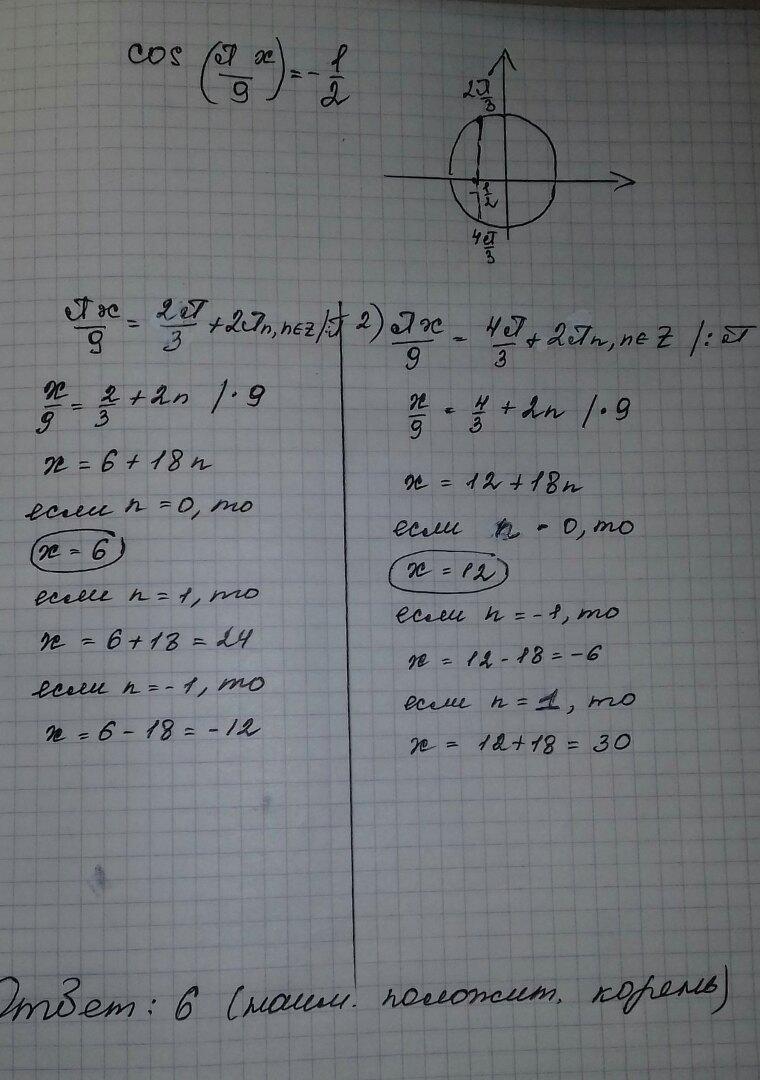 cos (πx/9) = -1/2
2π/3
-1/2
4π/3
πx/9 = 2π/3 + 2πn, n∈Z /:π
x/9 = 2/3 + 2n /·9
x = 6 + 18n
если n = 0, то
x = 6
если n = 1, то
x = 6 + 18 = 24
если n = -1, то
x = 6 - 18 = -12
2) πx/9 = 4π/3 + 2πn, n∈Z /:π
x/9 = 4/3 + 2n /·9
x = 12 + 18n
если n = 0, то
x = 12
если n = -1, то
x = 12 - 18 = -6
если n = 1, то
x = 12 + 18 = 30
Ответ: 6 (наим. положит. корень)